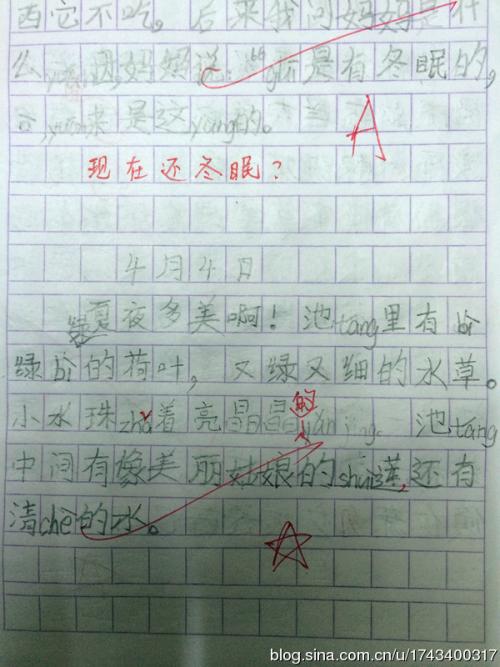 西它不吃。后来我问妈妈是什
么yuan因,妈妈说:世wu是有冬眠的,
o,yuan来是这yang的。
A
现在还冬眠?
4月4日
夏夜多美啊!池tang里有bi
绿bi的荷叶,又绿又细的水草。
小水珠zha着亮晶晶的yan jing。池tang
中间有像美丽姑娘的shui莲,还有
清che的水。
blog.sina.com.cn/u/1743400317